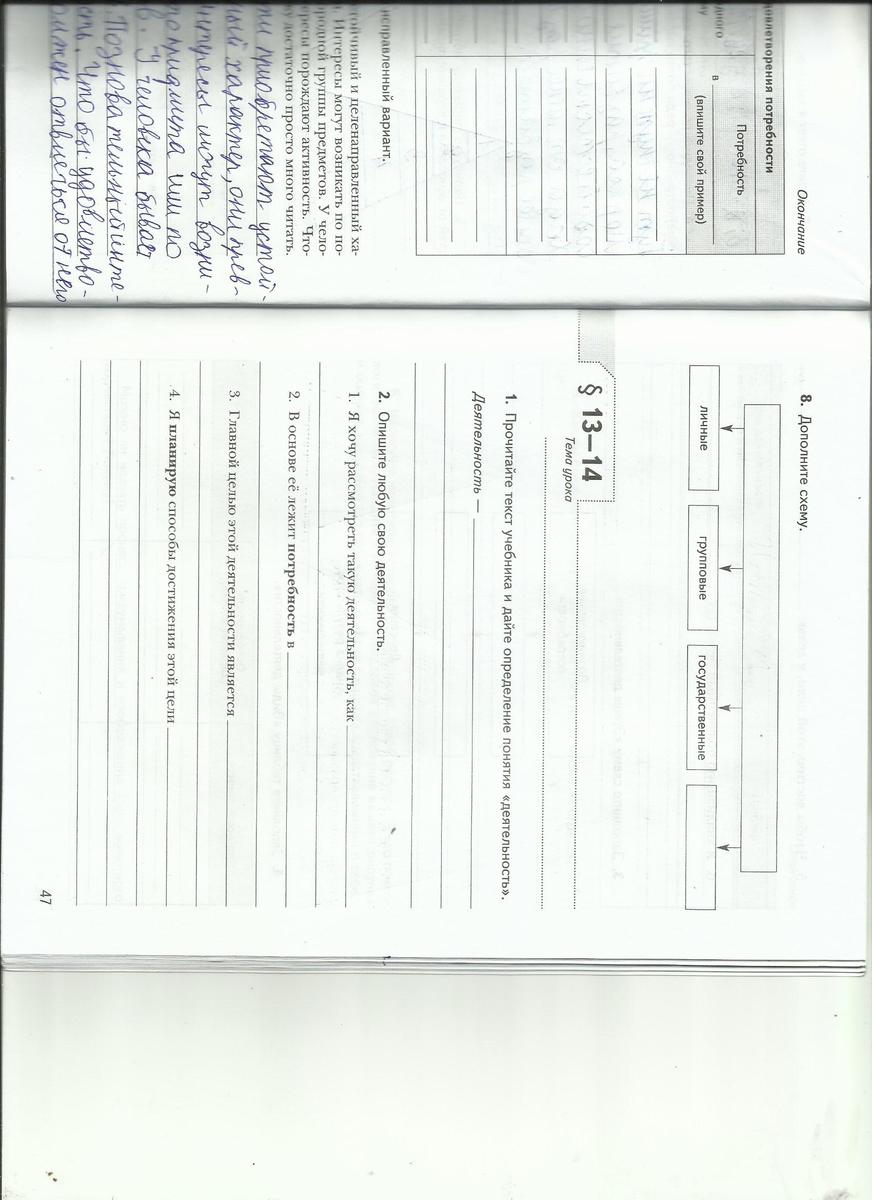 Окончание
довлетворения потребности
Потребность
в
(впишите свой пример)
исправленный вариант.
тойчивый и целенаправленный ха-
. Интересы могут возникать по по-
родной группы предметов. У чело-
ресы порождают активность. Что-
достаточно просто много читать.
ти приобретают устой-
ный характер, они прев-
интересы могут возни-
предмета или по
в. У человека бывает
Познавательный инте-
сть. Что бы удовлетво-
олжен отвлечься от него
8. Дополните схему.
личные
групповые
государственные
§ 13–14
Тема урока
1. Прочитайте текст учебника и дайте определение понятия «деятельность».
Деятельность —
2. Опишите любую свою деятельность.
1. Я хочу рассмотреть такую деятельность, как
2. В основе её лежит потребность в
3. Главной целью этой деятельности является
4. Я планирую способы достижения этой цели
47